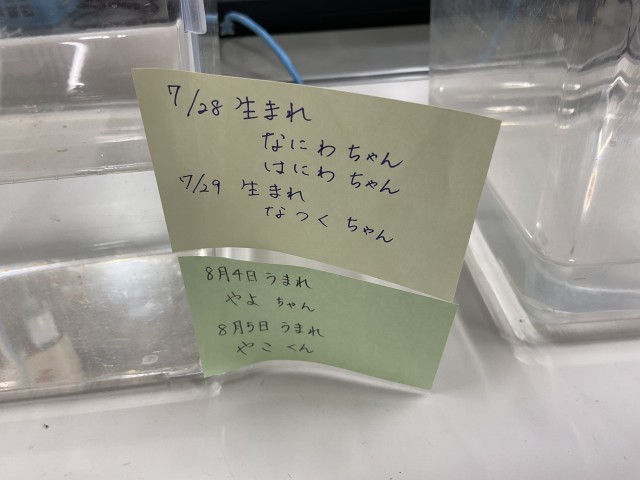 7/28 生まれ
なにわちゃん
はにわちゃん
7/29 生まれ
なつくちゃん
8月4日うまれ
やよちゃん
8月5日うまれ
やこくん